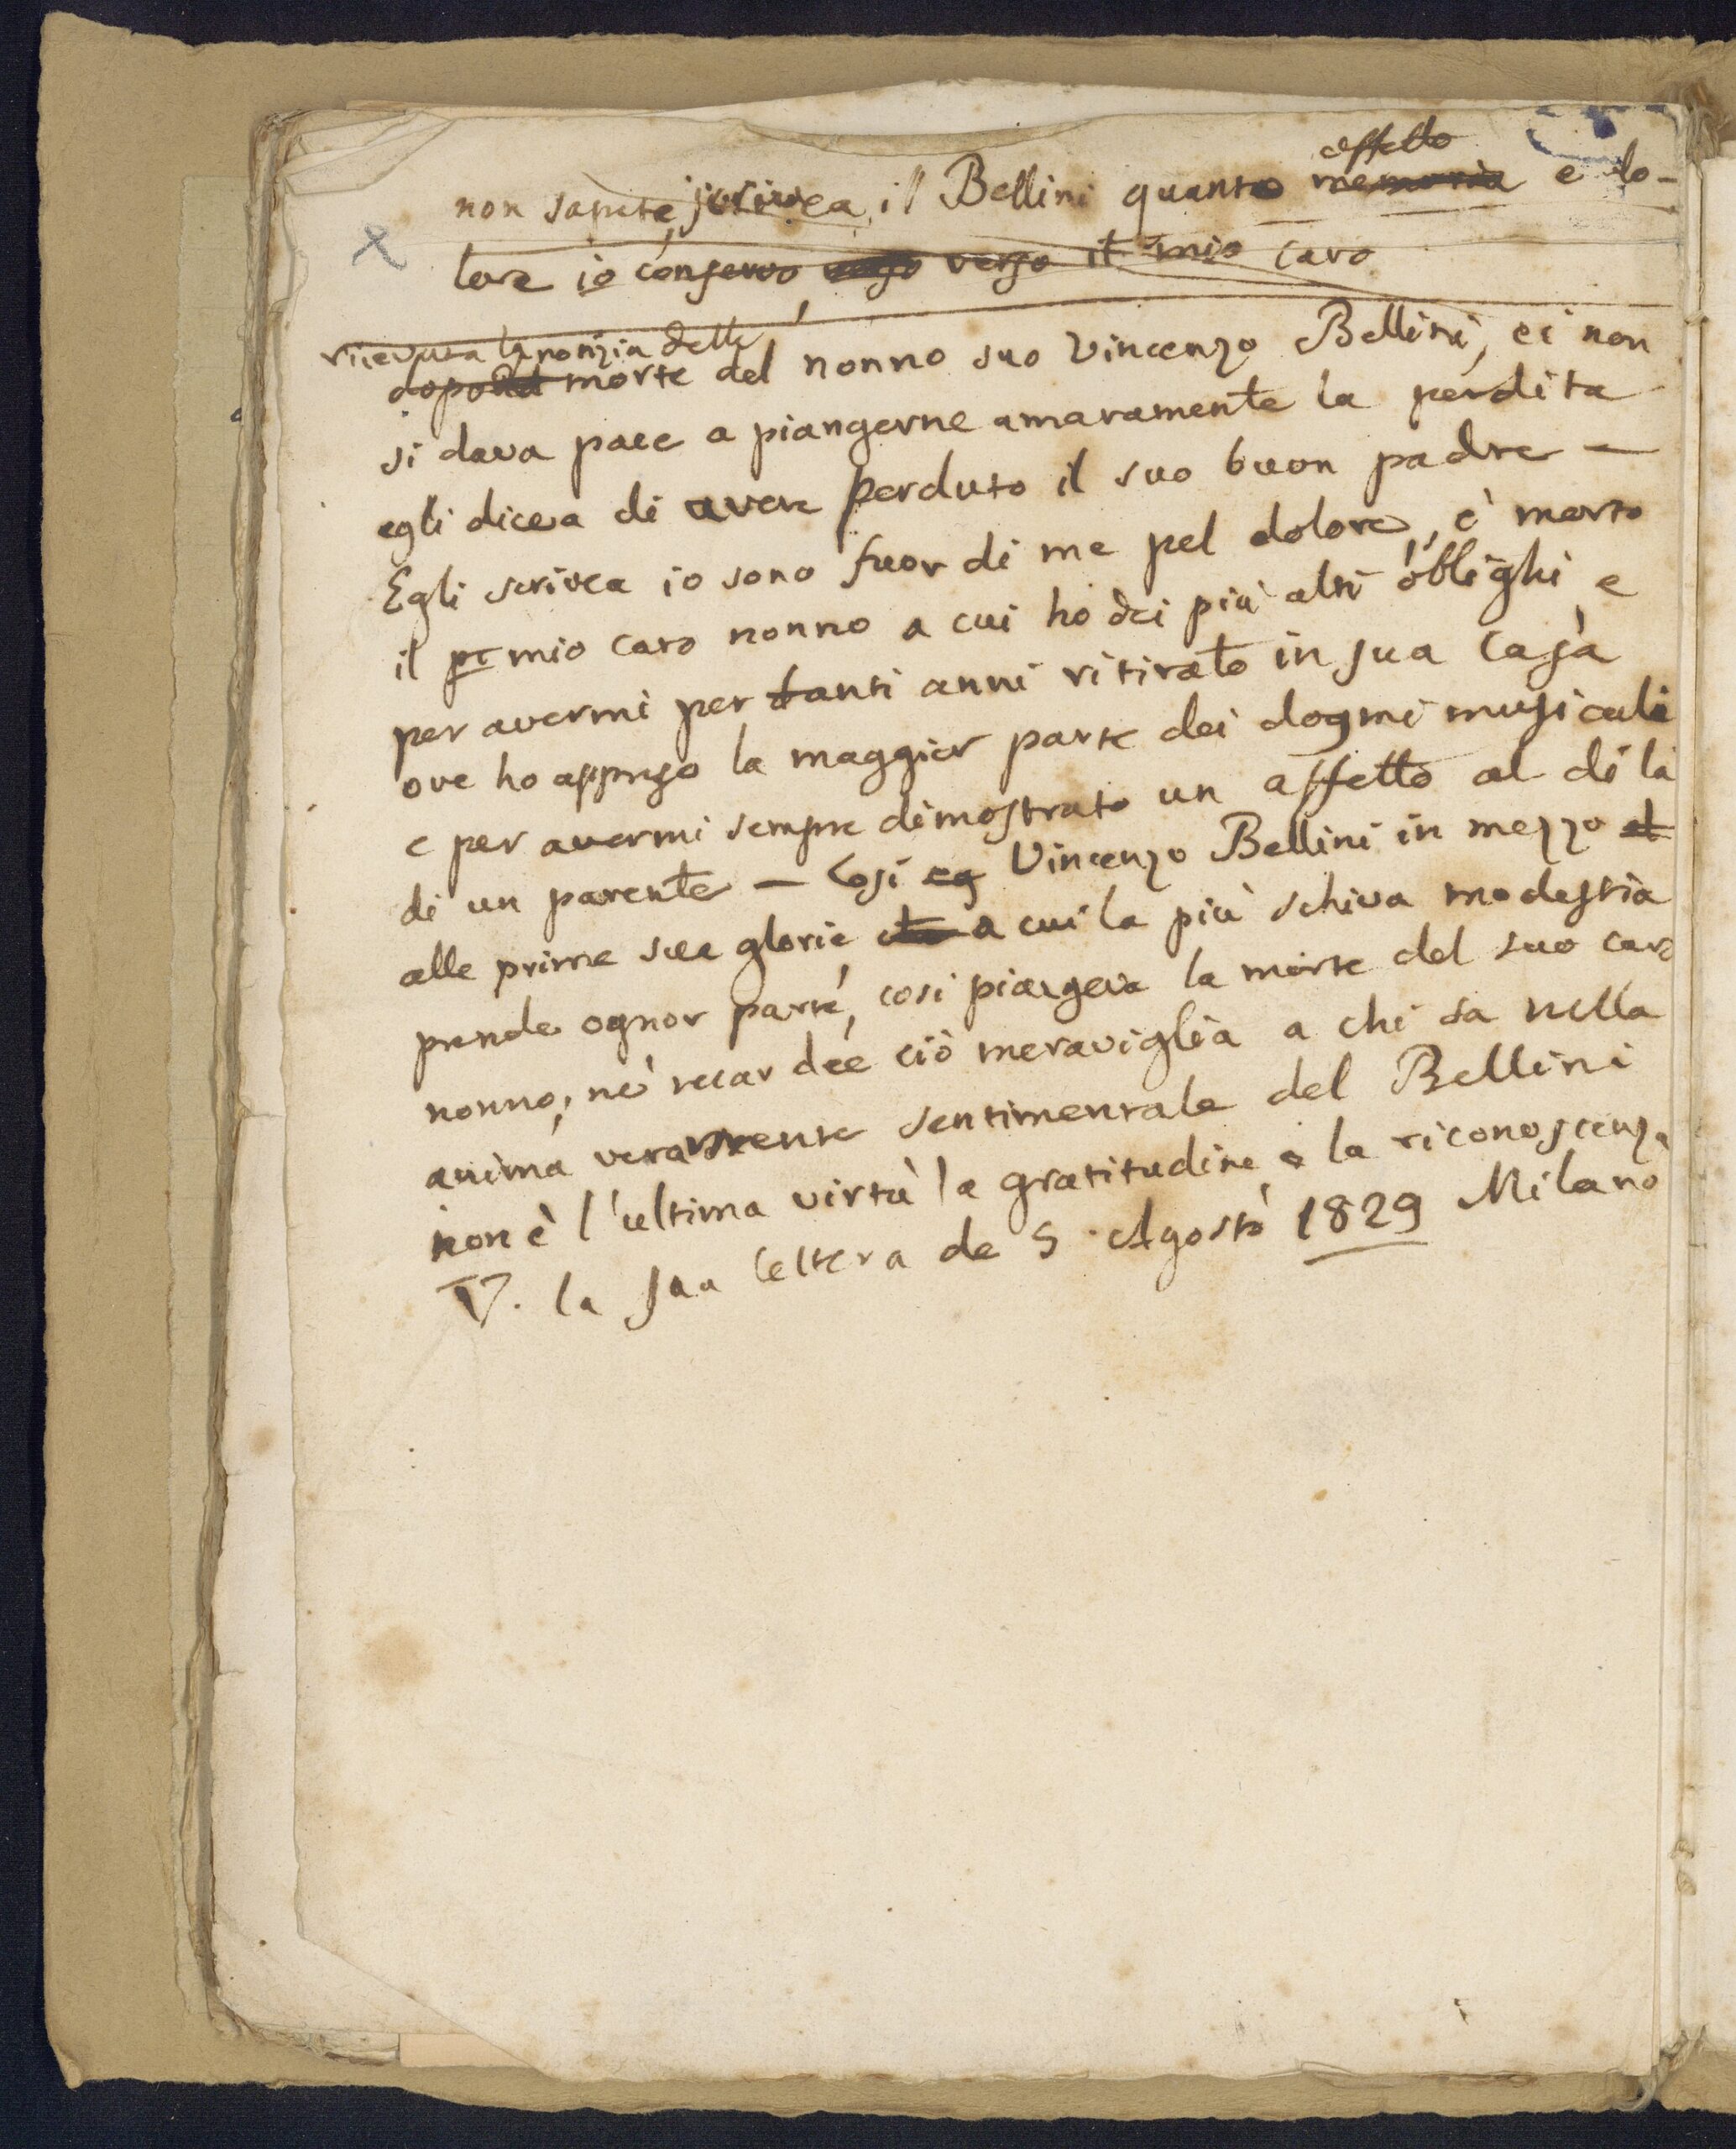 affetto
non sapete, scrivea, il Bellini quanto memoria e do-
lore io conservo verso verso il mio caro
ricevuta la notizia della
dopo la morte del nonno suo Vincenzo Bellini, ei non
si dava pace a piangerne amaramente la perdita
egli dicea di avere perduto il suo buon padre —
Egli scrivea io sono fuor di me pel dolore, è morto
il pr mio caro nonno a cui ho dei più alti oblighi, e
per avermi per tanti anni ritirato in sua casa
ove ho appreso la maggior parte dei dogmi musicali
e per avermi sempre dimostrato un affetto al di là
di un parente — Così eg Vincenzo Bellini in mezzo al
alle prime sue glorie a cui la più schiva modestia
prende ognor parte, così piangeva la morte del suo caro
nonno, nè recar dee ciò meraviglia a chi sa nella
anima veramente sentimentale del Bellini
non è l'ultima virtù la gratitudine e la riconoscenza
V. la sua lettera de 5 Agosto 1829 Milano